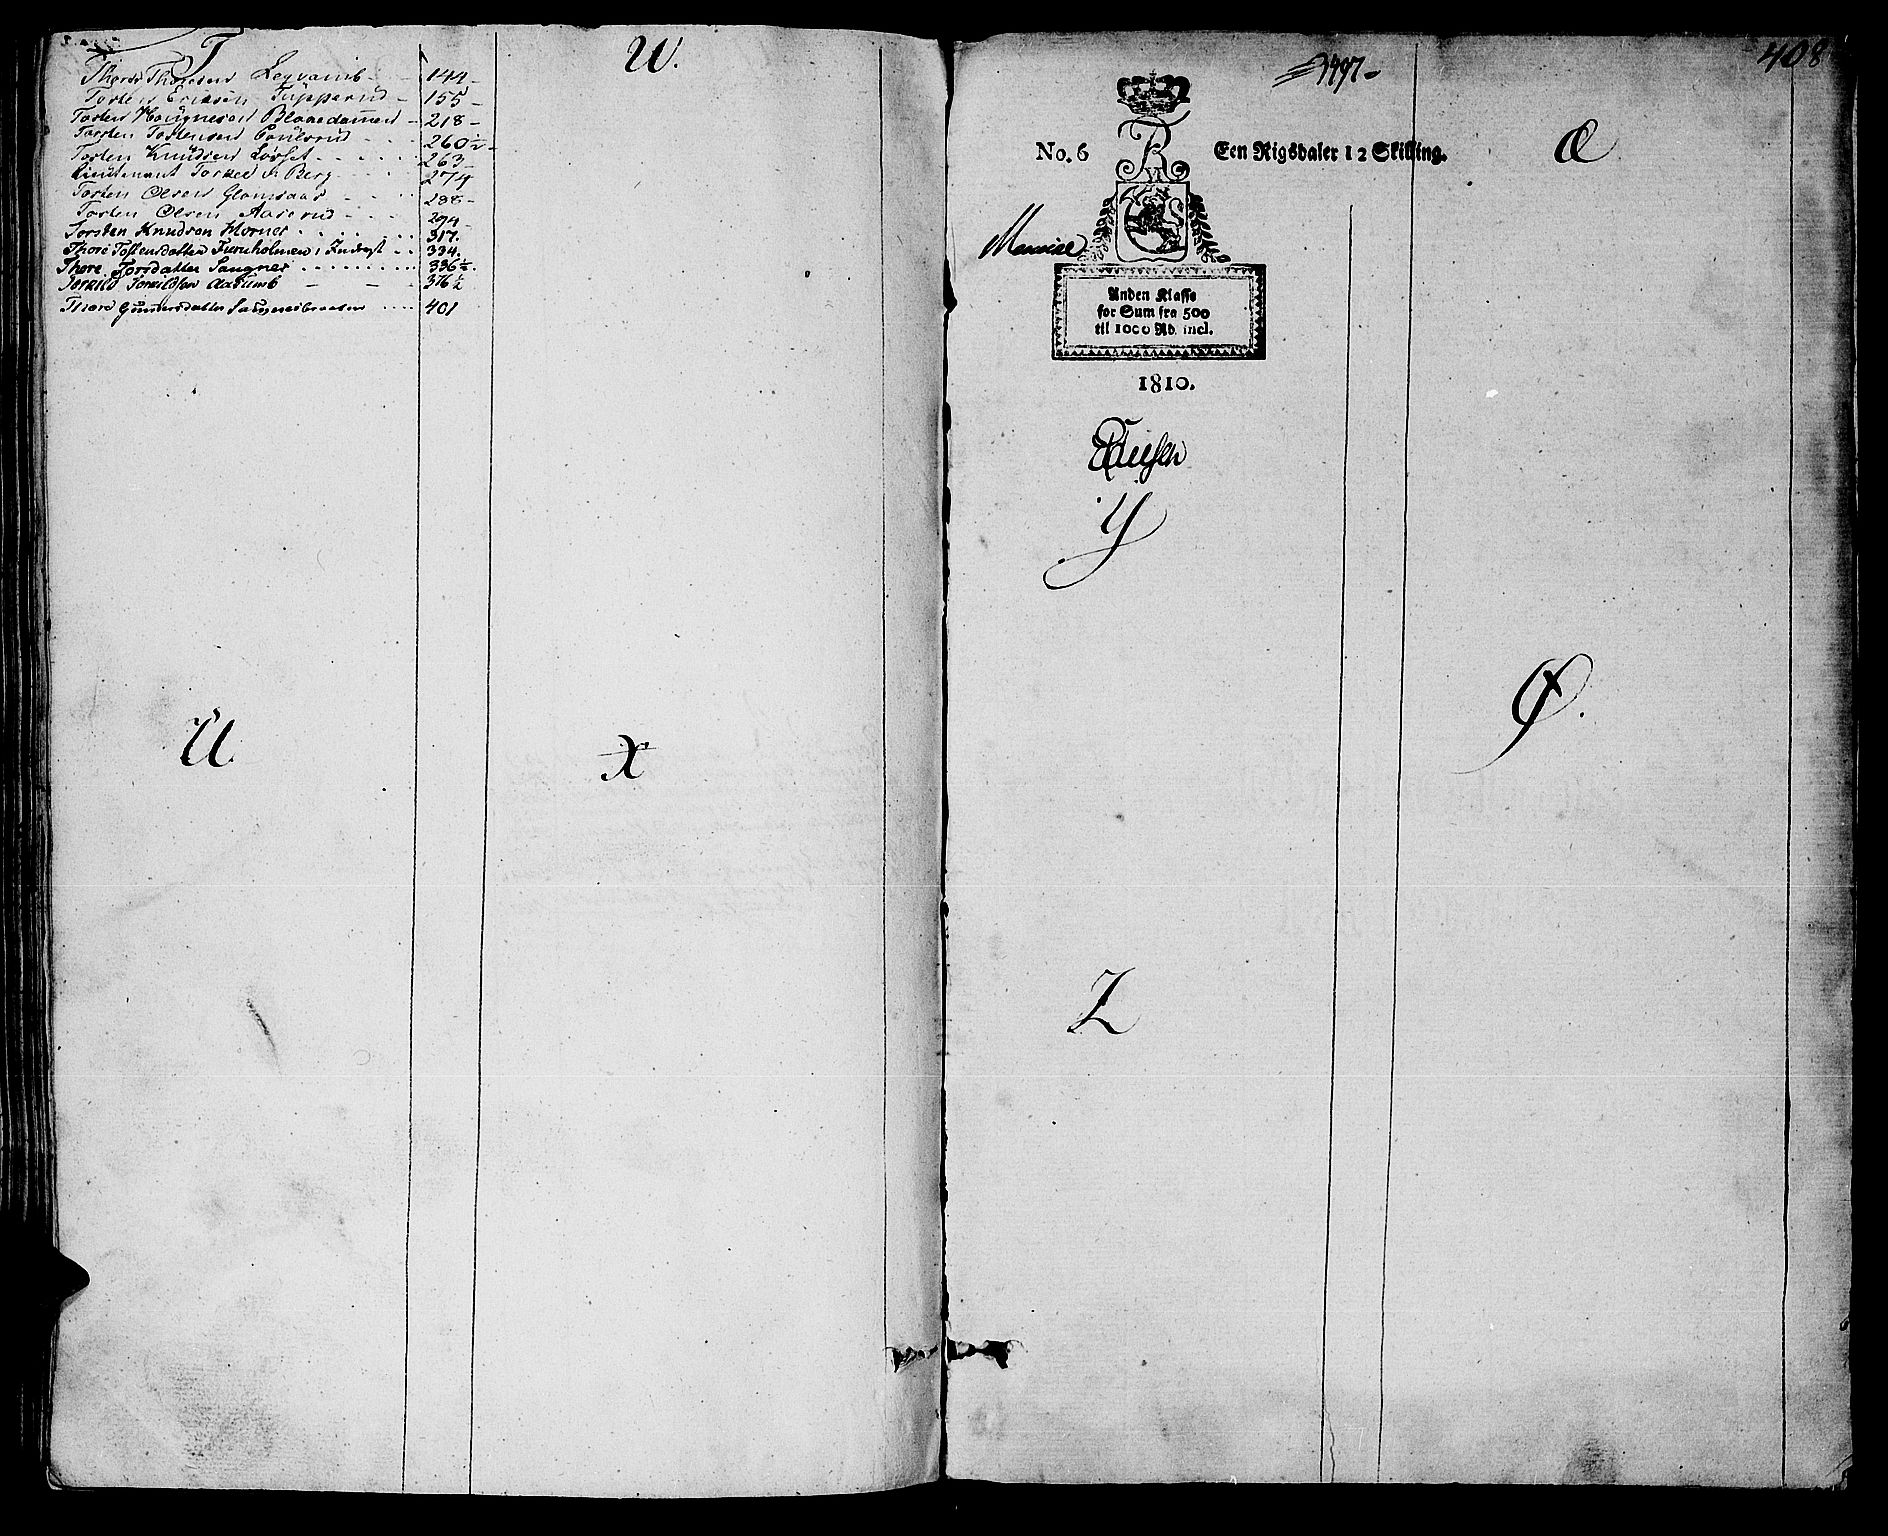 T
Thore Thoresen Leqvamb - 144 -
Tosten Eriksen Tupperud - 155 -
Tosten Haugnesen Blakedamen - 218 -
Torsten Tostensen Poulsrud - 260 1/2 -
Tosten Knudsen Lofset - 263 -
Lieutenant Torkel v: Berg - 274
Tosten Olsen Glomsaas - 288 -
Tosten Olsen Aaserud - 294
Torsten Knudsen Horner - 317.
Thore Tostensdatter Furuholmen, Inderst - 334.
Thore Torsdatter Saugnes - 336 1/2.
Torkild Torkildsen Aaslumb - 376 1/2
Thore Gunnersdatter Saugnesbraaten - 401
U
W.
X
408
No. 6 Een Rigsdaler 12 Skilling.
R
VI
Anden Klasse
for Sum fra 500
til 1000 Rd. incl.
1810.
Y
Z
Æ
Ø.